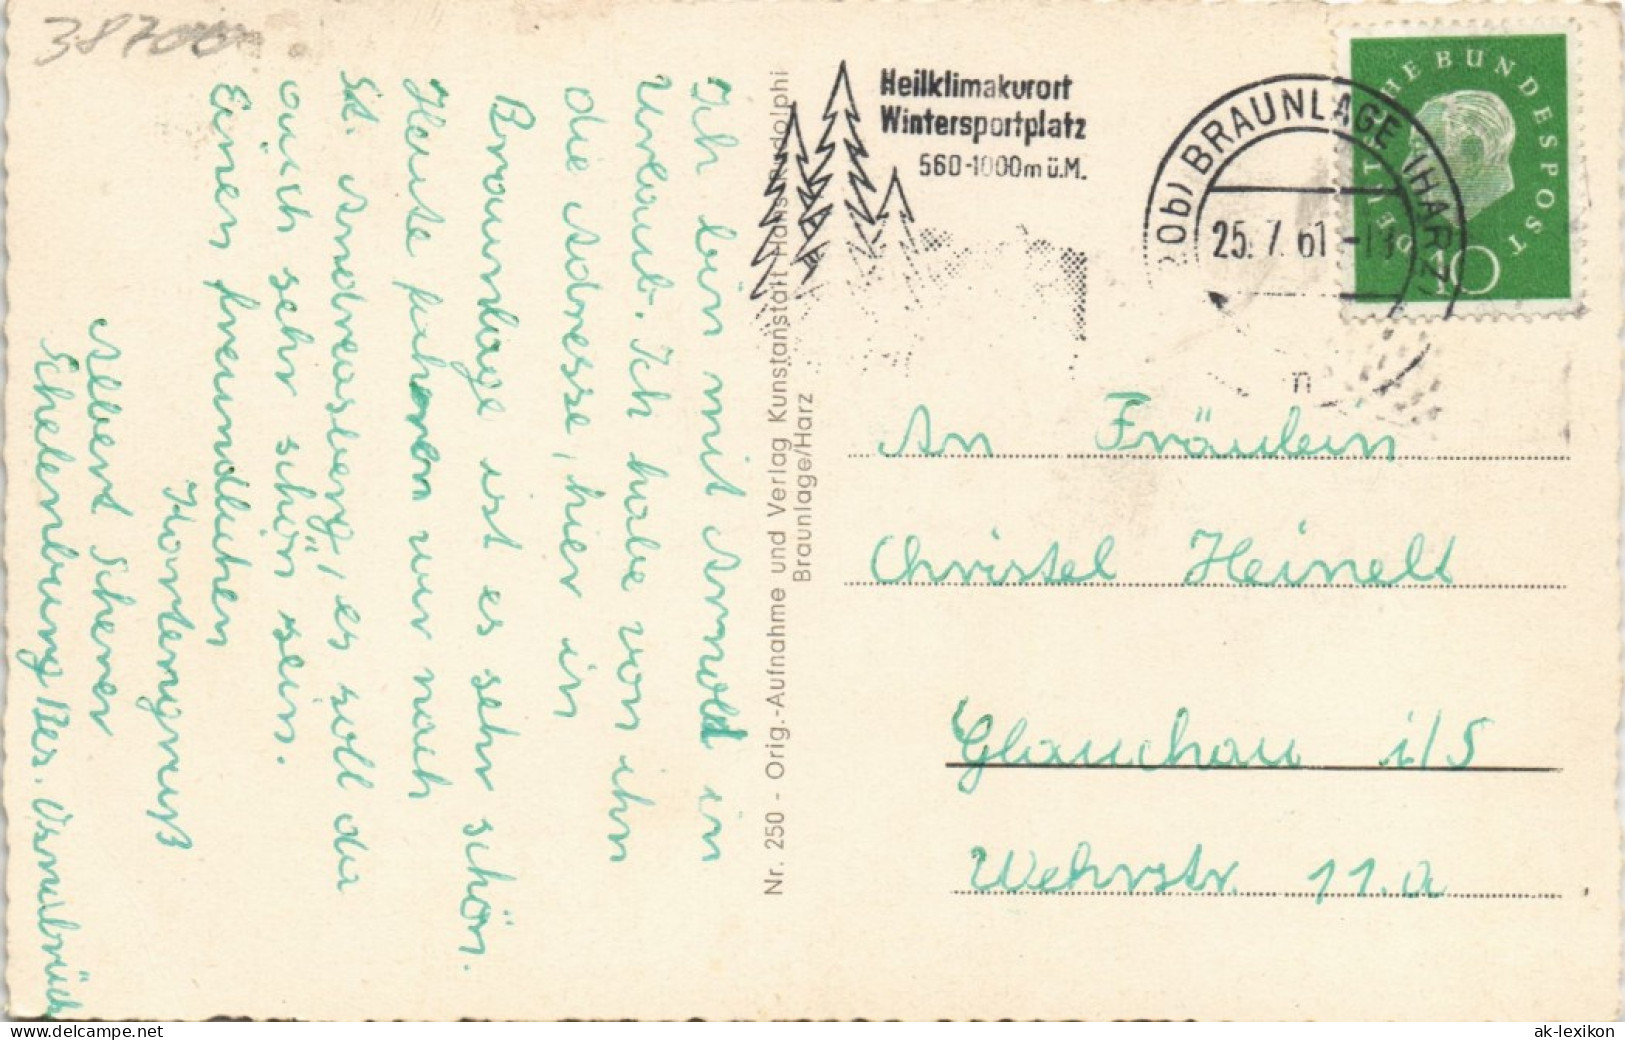 38700
Ich bin mit Arnold in
Urlaub. Ich habe von ihn
die Adresse, hier in
Braunlage ist es sehr schön.
Heute fahren wir nach
St. Andreasberg, es soll da
auch sehr schön sein.
Einen freundlichen
Kartengruß
Albert
Schelenburg Bez. Osnabrück
Nr. 250 - Orig.-Aufnahme und Verlag Kunstanstalt Hans Rudolphi
Braunlage/Harz
Heilklimakurort
Wintersportplatz
560-1000m ü.M.
BRAUNLAGE (HARZ)
25.7.61
DEUTSCHE BUNDESPOST
10
An Fräulein
Christel Heinelt
Glauchau i/S
Wehrstr. 11.a
www.delcampe.net
ak-lexikon